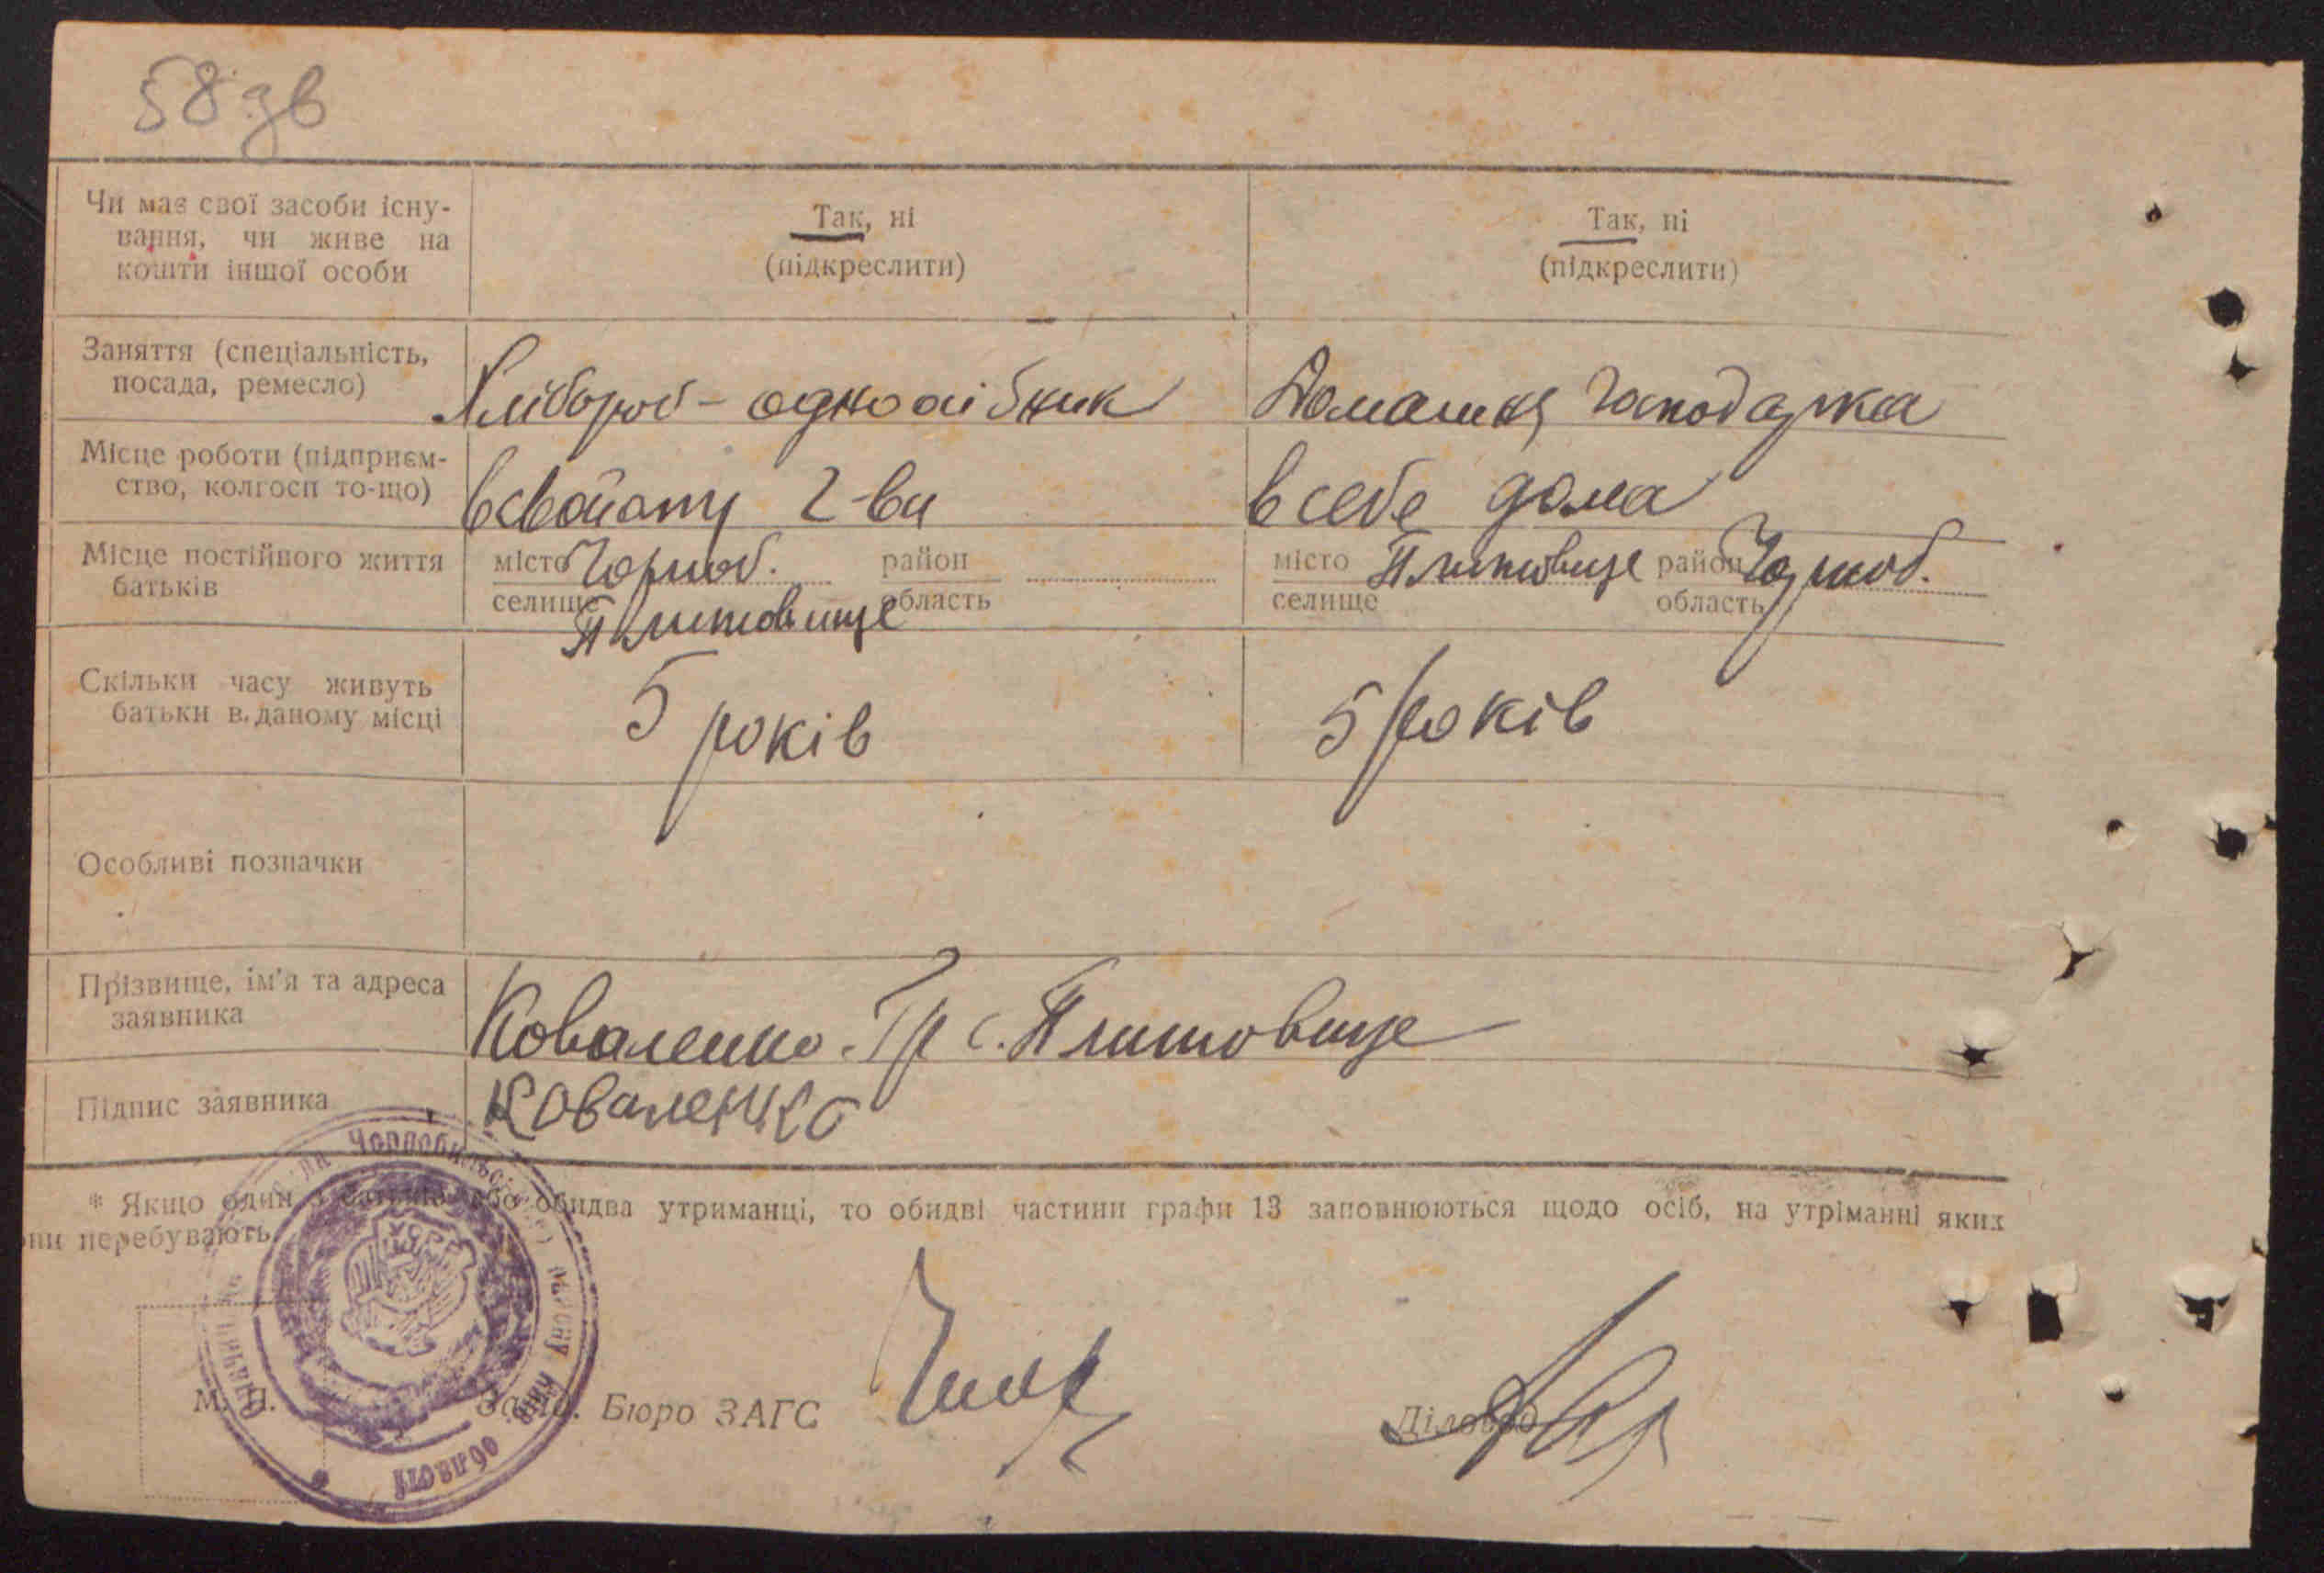 58 зв
Чи має свої засоби існу-
вання, чи живе на
кошти іншої особи
Так, ні
(підкреслити)
Так, ні
(підкреслити)
Заняття (спеціальність,
посада, ремесло)
Хлібороб - одноосібник
Домашня господарка
Місце роботи (підприєм-
ство, колгосп то-що)
в свойому г-ви
в себе дома
Місце постійного життя
батьків
місто Чорноб. район
селище область
Плитовище
місто Плитовище район Чорноб.
селище область
Скільки часу живуть
батьки в даному місці
5 років
5 років
Особливі позначки
Прізвище, ім'я та адреса
заявника
Коваленко Гр с. Плитовище
Підпис заявника
Коваленко
* Якщо один з батьків або обидва утриманці, то обидві частини графи 13 заповнюються щодо осіб, на утріманні яких
они перебувають.
Чорнобильс району Київ. області
М. П.
Зав. Бюро ЗАГС
Діловод